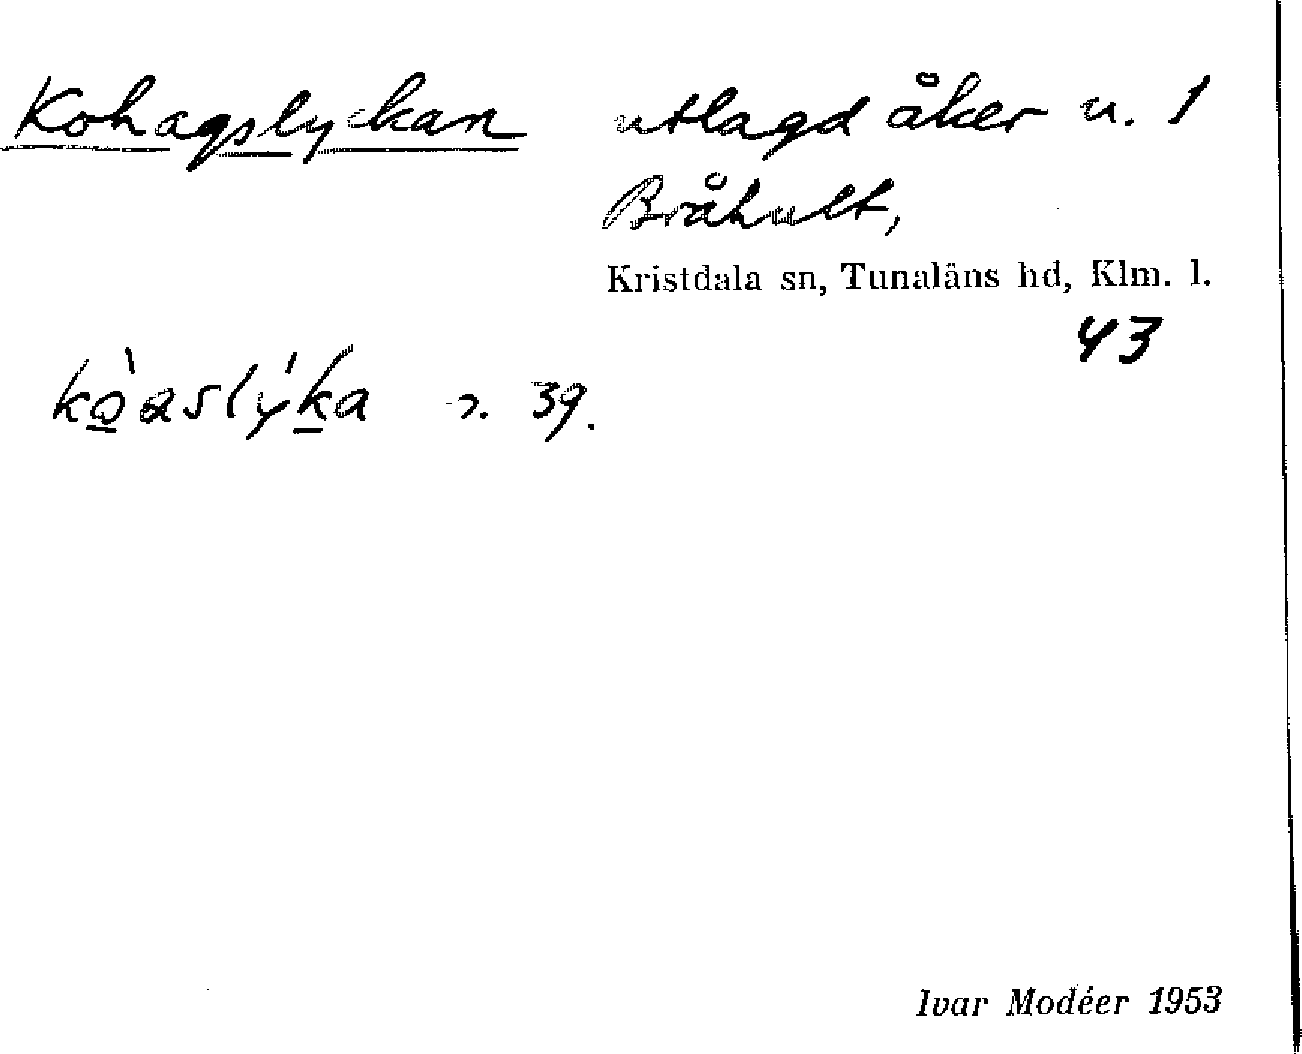 Kohagslyckan utlagd åker u. 1
Bråhult,
Kristdala sn, Tunaläns hd, Klm. l.
43
kò̲aslýk̲a 39.
Ivar Modéer 1953